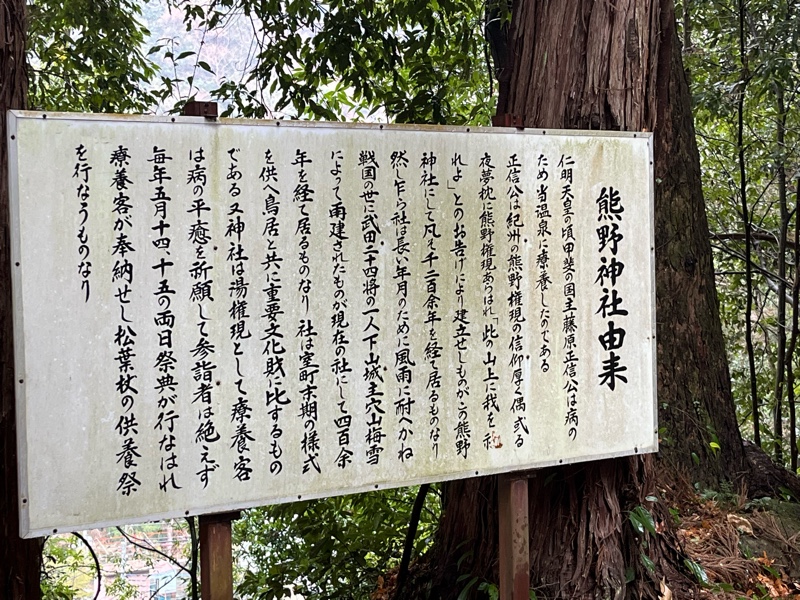 熊野神社由来
仁明天皇の頃甲斐の国主藤原正信公は病の
ため当温泉に療養したのである
正信公は紀州の熊野権現の信仰厚く偶或る
夜夢枕に熊野権現あらはれ「此の山上に我を祀
れよ」とのお告げにより建立せしものがこの熊野
神社にして凡そ千二百余年を経て居るものなり
然し乍ら社は長い年月のために風雨に耐へかね
戦国の世に武田二十四将の一人下山城主穴山梅雪
によって再建されたものが現在の社にして四百余
年を経て居るものなり 社は室町末期の様式
を供へ鳥居と共に重要文化財に比するもの
である又神社は湯権現として療養客
は病の平癒を祈願して参詣者は絶えず
毎年五月十四十五の両日祭典が行なはれ
療養客が奉納せし松葉杖の供養祭
を行なうものなり